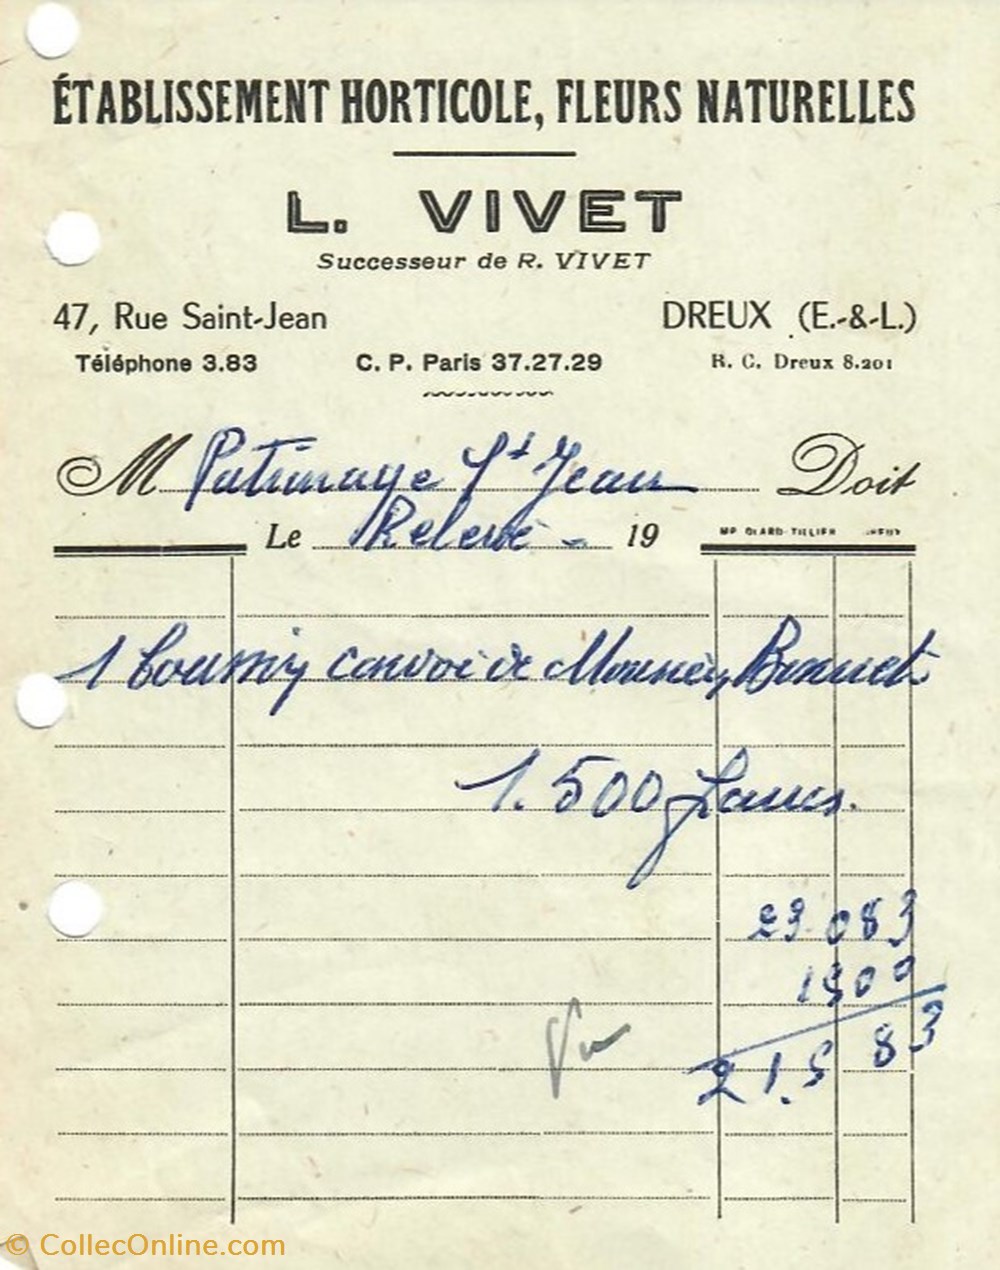 ÉTABLISSEMENT HORTICOLE, FLEURS NATURELLES
L. VIVET
Successeur de R. VIVET
47, Rue Saint-Jean DREUX (E.-&-L.)
Téléphone 3.83 C. P. Paris 37.27.29 R. C. Dreux 8.201
M Patronage St Jean Doit
Le Relevé - 19
1 convoi de Bonnet
1.500 francs.
083
1500
21.583
Vu
© CollecOnline.com